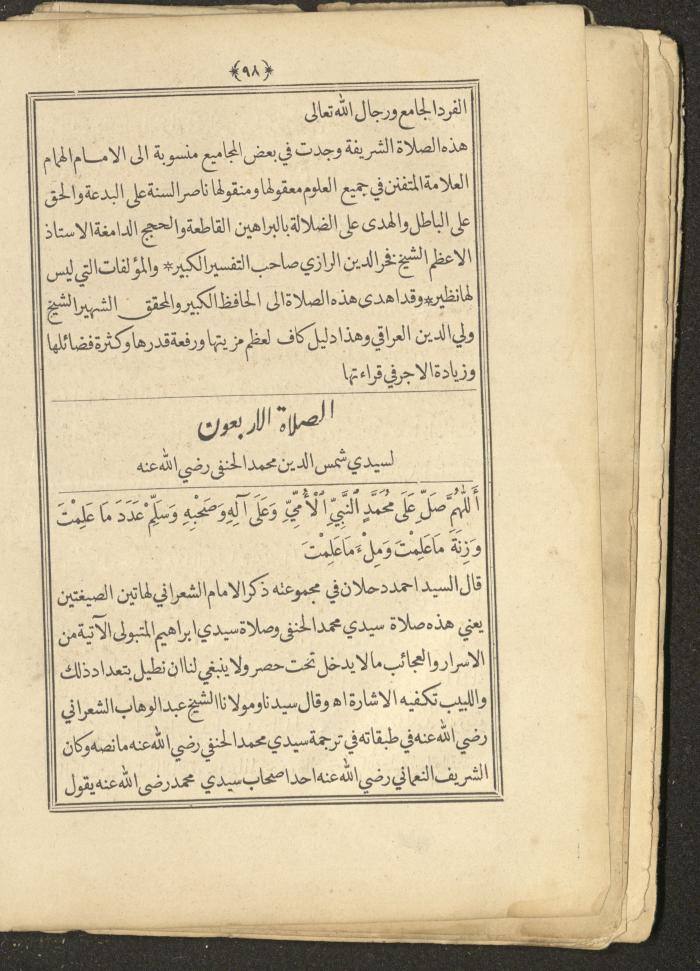 ﴿٩٨﴾
الفرد الجامع ورجال الله تعالى
هذه الصلاة الشريفة وجدت في بعض المجاميع منسوبة الى الامام الهمام
العلامة المتفنن في جميع العلوم معقولها ومنقولها ناصر السنة على البدعة والحق
على الباطل والهدى على الضلالة بالبراهين القاطعة والحجج الدامغة الاستاذ
الاعظم الشيخ فخر الدين الرازي صاحب التفسير الكبير * والمؤلفات التي ليس
لها نظير * وقد اهدى هذه الصلاة الى الحافظ الكبير والمحقق الشهير الشيخ
ولي الدين العراقي وهذا دليل كاف لعظم مزيتها ورفعة قدرها وكثرة فضائلها
وزيادة الاجر في قراءتها
الصلاة الاربعون
لسيدي شمس الدين محمد الحنفى رضي الله عنه
أَللّٰهُمَّ صَلِّ عَلَى مُحَمَّدٍ ٱلنَّبِيِّ ٱلْأُمِّيِّ وَعَلَى آلِهِ وَصَحْبِهِ وَسَلِّمْ عَدَدَ مَا عَلِمْتَ
وَزِنَةَ مَا عَلِمْتَ وَمِلْءَ مَا عَلِمْتَ
قال السيد احمد دحلان في مجموعته ذكر الامام الشعراني لهاتين الصيغتين
يعني هذه صلاة سيدي محمد الحنفى وصلاة سيدي ابراهيم المتبولى الآتية من
الاسرار والعجائب ما لا يدخل تحت حصر ولا ينبغي لنا ان نطيل بتعداد ذلك
واللبيب تكفيه الاشارة اه وقال سيدنا ومولانا الشيخ عبد الوهاب الشعراني
رضي الله عنه في طبقاته في ترجمة سيدي محمد الحنفي رضي الله عنه ما نصه وكان
الشريف النعماني رضي الله عنه احد اصحاب سيدي محمد رضى الله عنه يقول